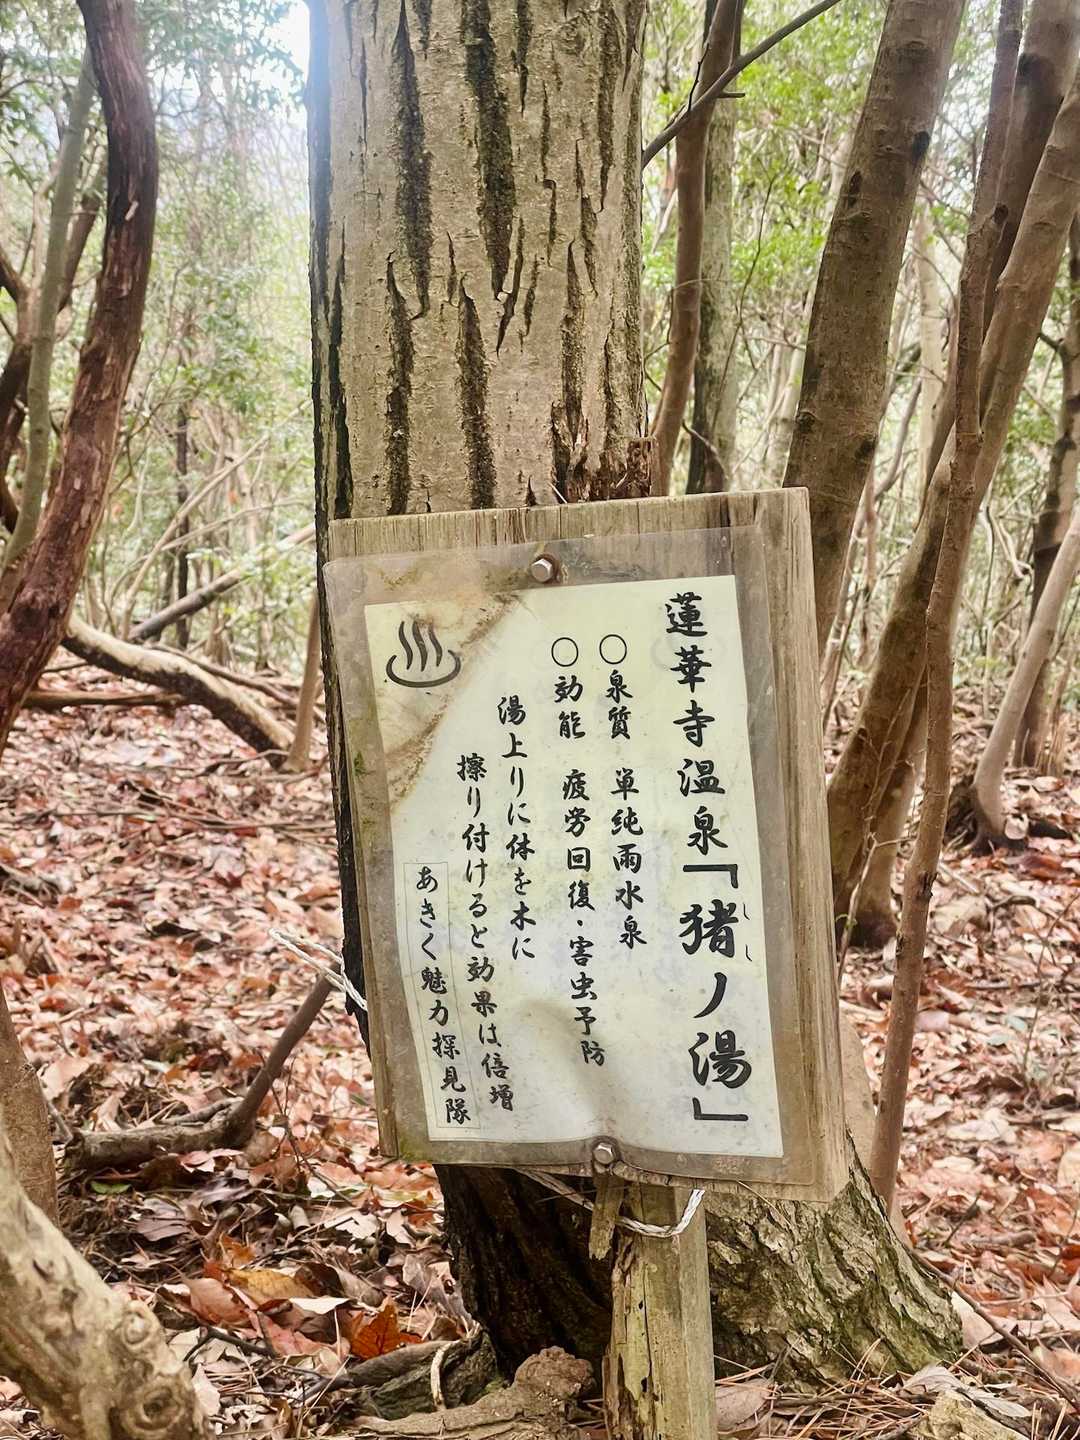 蓮華寺温泉「猪ノ湯」
しし
○泉質 単純雨水泉
○効能 疲労回復・害虫予防
湯上りに体を木に
擦り付けると効果は倍増
あきく魅力探見隊